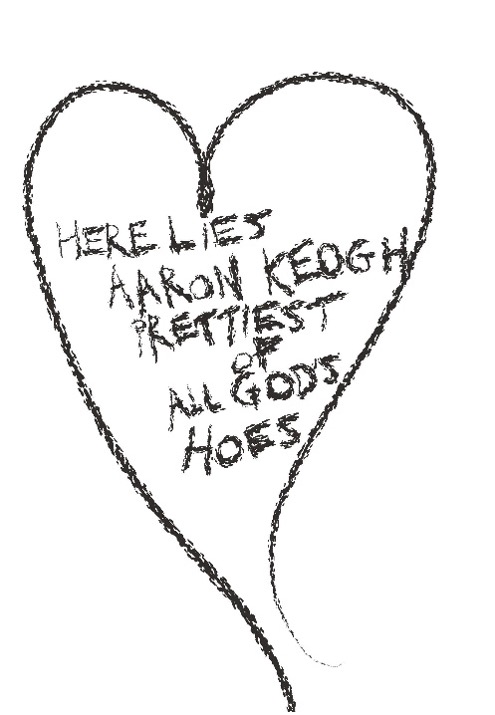 HERE LIES
AARON KEOGH
PRETTIEST
OF
ALL GODS
HOES